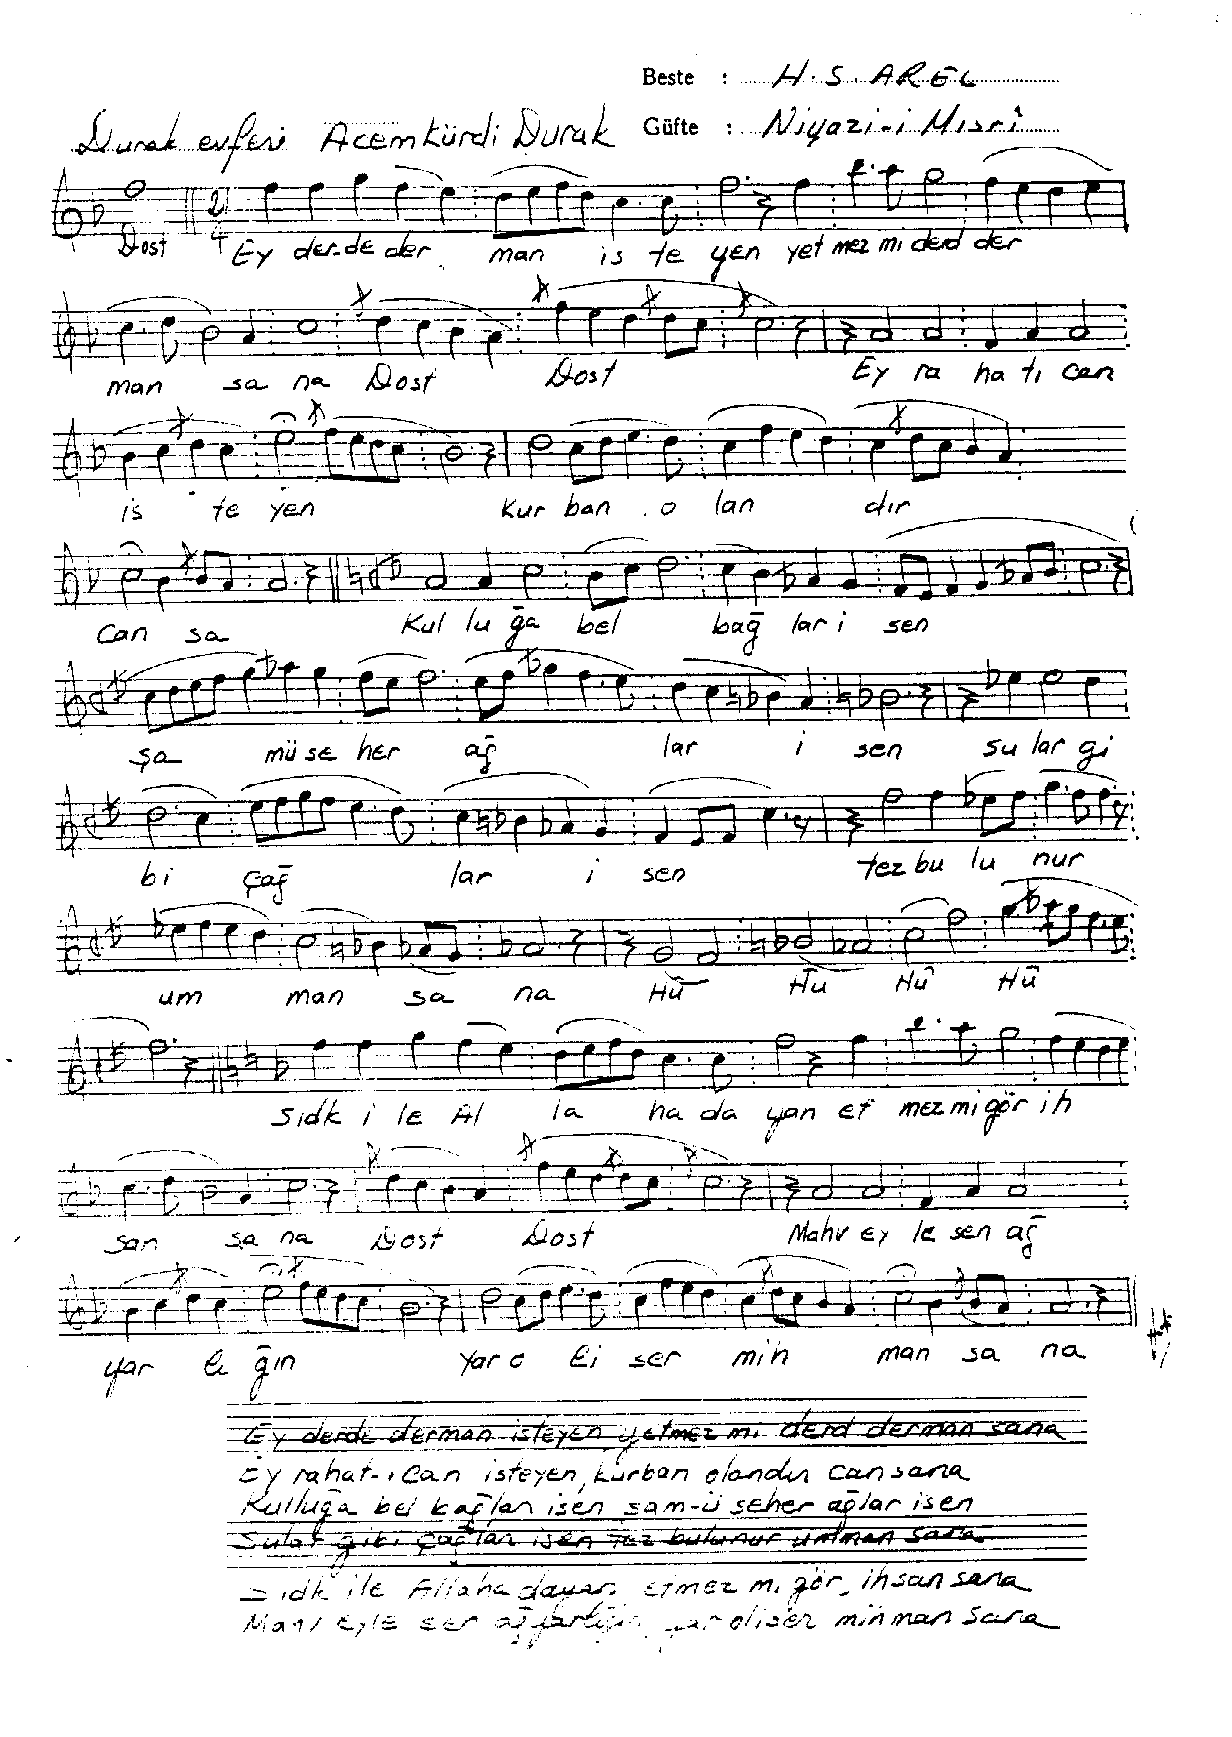 Beste : H. S. AREL
Durak evferi Acemkürdi Durak Güfte : Niyazi-i Mısrî
Dost 21 4 Ey der-de der man is te yen yet mez mi derd der
man sa na Dost Dost Ey ra ha tı can
is te yen kur ban . o lan dır
can sa Kul lu ğa bel bağ lar i sen
şa mü se her ağ lar i sen su lar gi
bi çağ lar i sen tez bu lu nur
um man sa na Hû Hû Hû Hû
Sıdk i le Al la ha da yan et mez mi gör ih
san sa na Dost Dost Mahv ey le sen ağ
yar lı ğın Yar o li ser mih man sa na
Ey derde derman isteyen yetmez mi derd derman sana
Ey rahat-ı can isteyen, kurban olandır can sana
Kulluğa bel bağlar isen şam-ü seher ağlar isen
Sular gibi çağlar isen tez bulunur umman sana
Sıdk ile Allaha dayan etmez mi gör, ihsan sana
eyle ağyarlığın yar oliser mihman sana